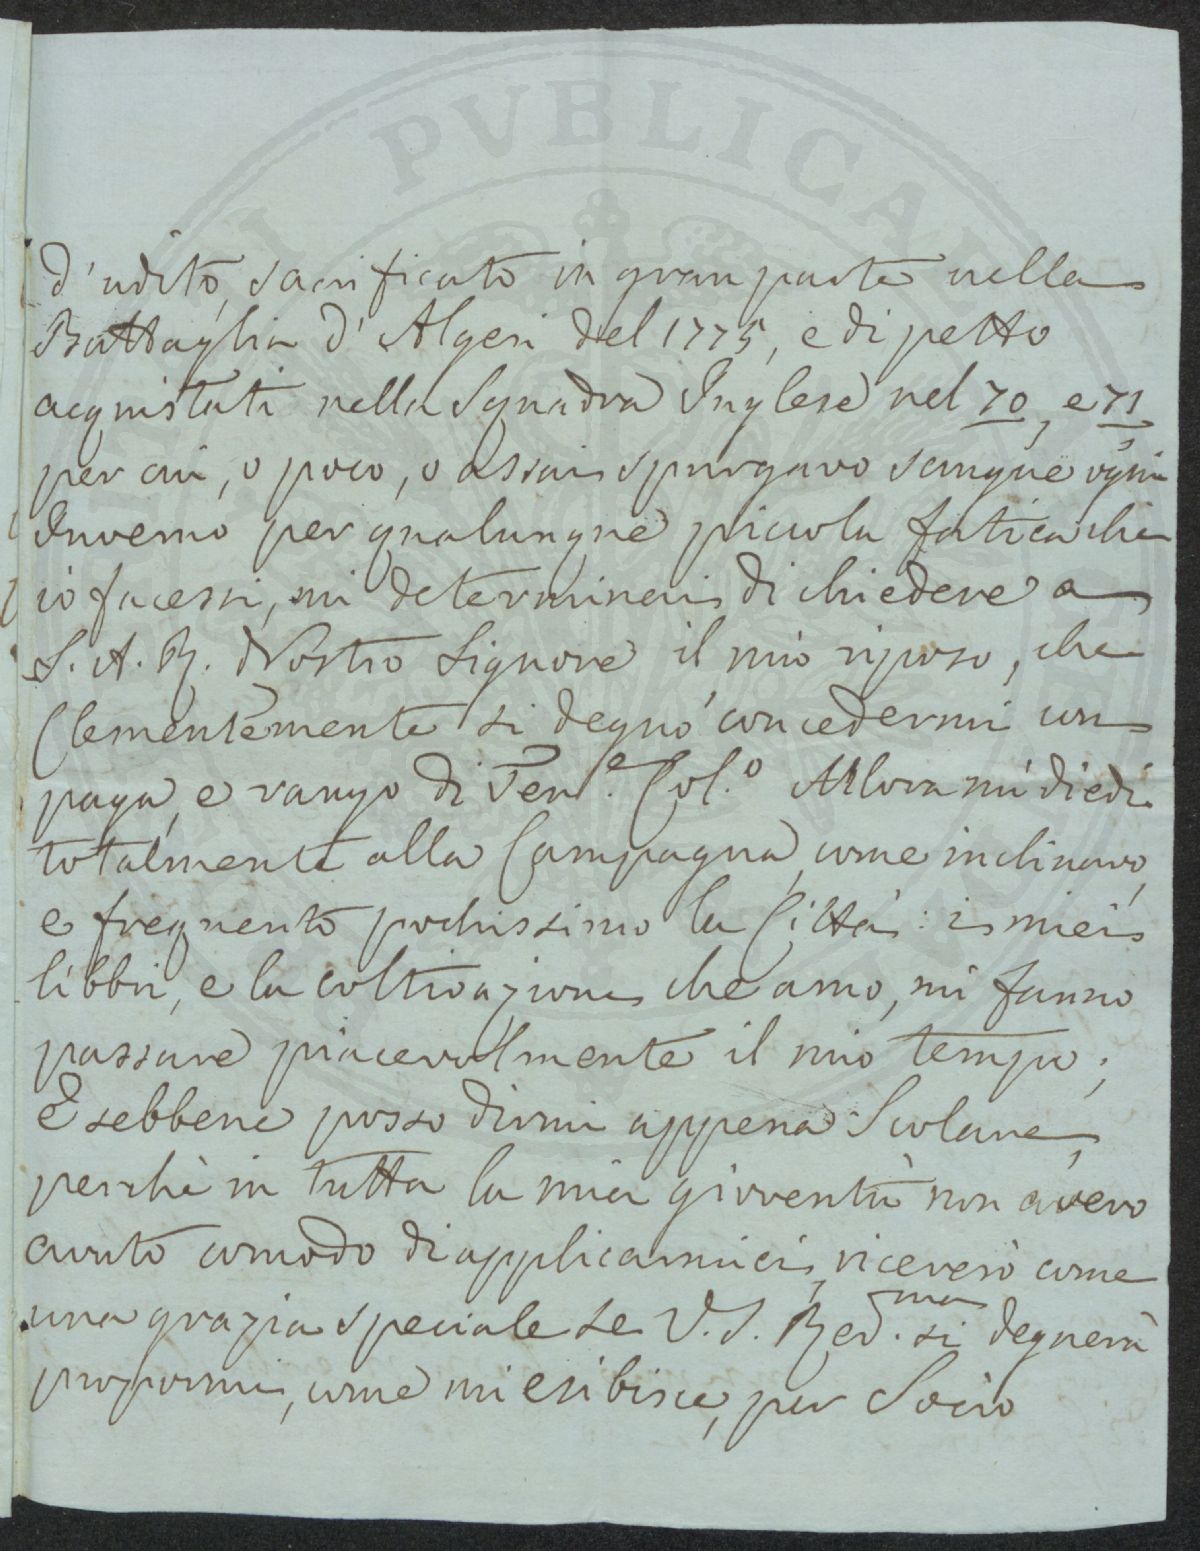 PVBLICAE
d'udito, sacrificato in gran parte nella
Battaglia d'Algeri del 1775, e di petto
acquistati nella Squadra Inglese nel 70, e 71
per cui, o poco, o assai spurgavo sangue ogni
Inverno per qualunque piccola fatica che
io facessi, mi determinai di chiedere a
S. A. R. Nostro Signore il mio riposo, che
Clementemente si degnò concedermi con
paga, e rango di Ten.e Col.o Allora mi diedi
totalmente alla Campagna, come inclinavo,
e frequento pochissimo la Città: i miei
libbri, e la coltivazione che amo, mi fanno
passare piacevolmente il mio tempo;
E sebbene posso dirmi appena Scolare,
perchè in tutta la mia gioventù non avevo
avuto comodo di applicarmici, riceverò come
una grazia speciale se V. S. Red.ma si degnerà
propormi, come mi esibisce, per Socio